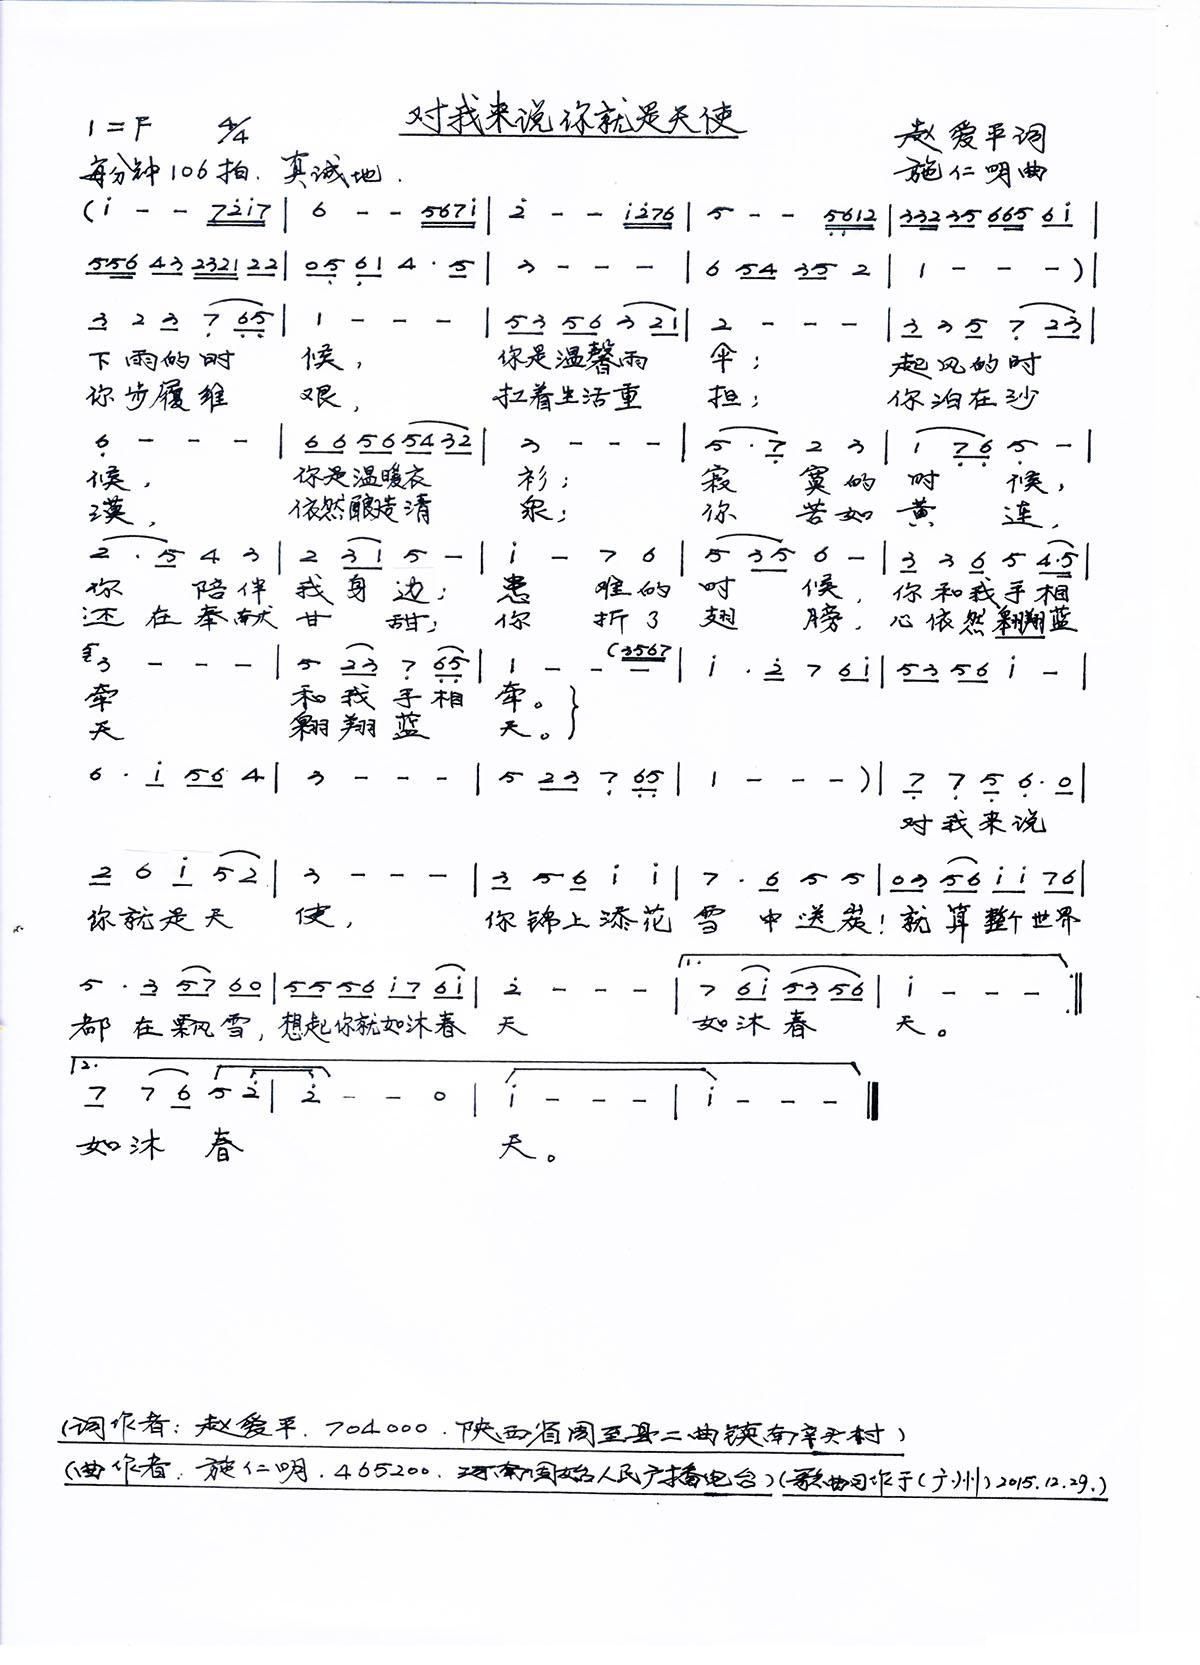 对我来说你就是天使
1=F 4/4
赵爱平词
每分钟106拍. 真诚地.
施仁明曲
(i - - 72i7 | 6 - - 567i | 2 - - i276 | 5 - - 5612 | 332 35 665 6i |
556 43 2321 22 | 05 61 4·5 | 3 - - - | 6 54 35 2 | 1 - - -) |
3 2 3 7 65 | 1 - - - | 53 56 3 21 | 2 - - - | 3 3 5 7 23 |
下雨的时 候, 你是温馨雨 伞; 起风的时
你步履维 艰, 扛着生活重 担; 你泊在沙
6 - - - | 66 56 54 32 | 3 - - - | 5·7 2 3 | 1 76 5 - |
候, 你是温暖衣 衫; 寂 寞的 时 候,
漠, 依然酿造清 泉; 你 苦如 黄 连,
2·5 4 3 | 2 31 5 - | i - 7 6 | 5 35 6 - | 3 3 6 5 4·5 |
你 陪伴 我身 边; 患 难的 时 候, 你和我手相
还在奉献 甘 甜; 你 折了 翅 膀, 心依然翱翔蓝
3 - - - | 5 23 7 65 | 1 - - - (3567 | i·2 7 6i | 53 56 i - |
牵 和我手相 牵。
天 翱翔蓝 天。
6·i 56 4 | 3 - - - | 5 23 7 65 | 1 - - -) | 7 7 5 6·0 |
对我来说
2 6 i 52 | 3 - - - | 3 5 6 i i | 7·6 5 5 | 03 56 ii 76 |
你就是天 使, 你锦上添花 雪 中送炭! 就算整个世界
1.
5·3 57 60 | 55 56 i7 6i | 2 - - - | 7 6i 53 56 | i - - - :||
都在飘雪, 想起你就如沐春 天 如沐春 天。
2.
7 7 6 5 2 | 2 - - 0 | i - - - | i - - - ||
如沐 春 天。
(词作者: 赵爱平. 704000. 陕西省周至县二曲镇南辛头村)
(曲作者. 施仁明. 465200. 河南固始人民广播电台)(歌曲习作于(广州)2015.12.29.)